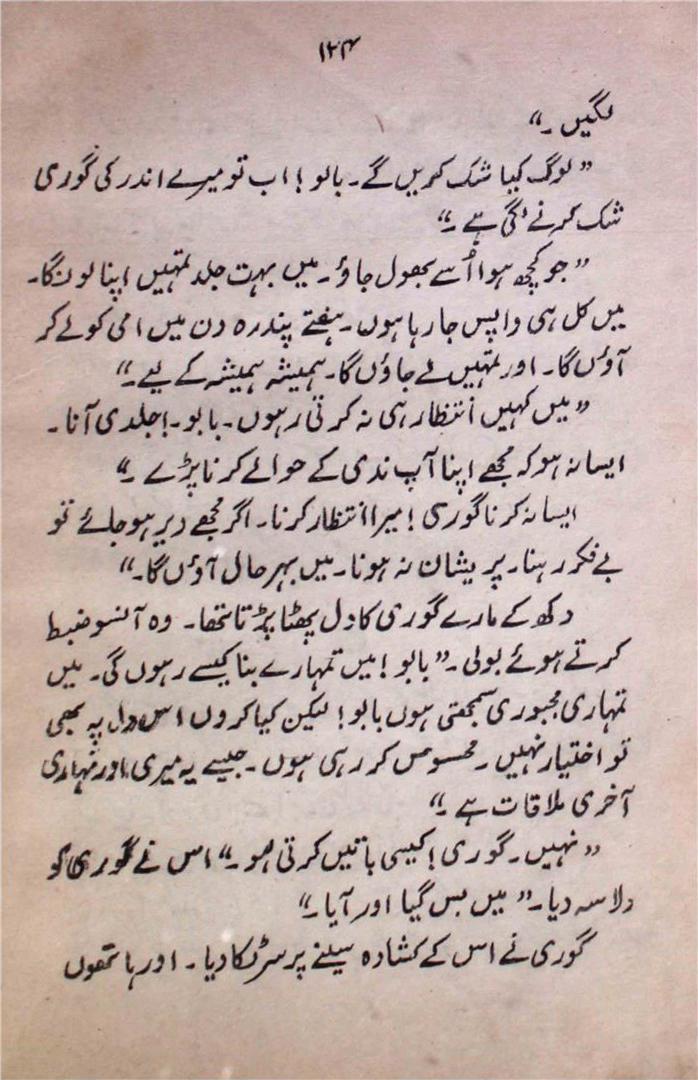 ۱۲۴
لگیں۔“
”لوگ کیا شک کریں گے۔ بابو! اب تو میرے اندر کی گوری
شک کرنے لگی ہے۔“
”جو کچھ ہوا اُسے بھول جاؤ۔ میں بہت جلد تمہیں اپنا لونگا۔
میں کل ہی واپس جا رہا ہوں۔ ہفتے پندرہ دن میں امی کو لے کر
آؤں گا۔ اور تمہیں لے جاؤں گا۔ ہمیشہ ہمیشہ کے لیے۔“
”میں کہیں انتظار ہی نہ کرتی رہوں۔ بابو۔! جلدی آنا۔
ایسا نہ ہو کہ مجھے اپنا آپ ندی کے حوالے کرنا پڑے۔“
ایسا نہ کرنا گوری! میرا انتظار کرنا۔ اگر مجھے دیر ہو جائے تو
بے فکر رہنا۔ پریشان نہ ہونا۔ میں بہر حال آؤں گا۔“
دکھ کے مارے گوری کا دل پھٹا پڑتا تھا۔ وہ آنسو ضبط
کرتے ہوئے بولی۔ ”بابو! میں تمہارے بنا کیسے رہوں گی۔ میں
تمہاری مجبوری سمجھتی ہوں بابو! لیکن کیا کروں اس دل پہ بھی
تو اختیار نہیں۔ محسوس کر رہی ہوں۔ جیسے یہ میری اور تمہاری
آخری ملاقات ہے۔“
”نہیں۔ گوری! کیسی باتیں کرتی ہو۔“ اس نے گوری کو
دلاسہ دیا۔ ”میں بس گیا اور آیا۔“
گوری نے اس کے کشادہ سینے پر سر ٹکا دیا۔ اور ہاتھوں